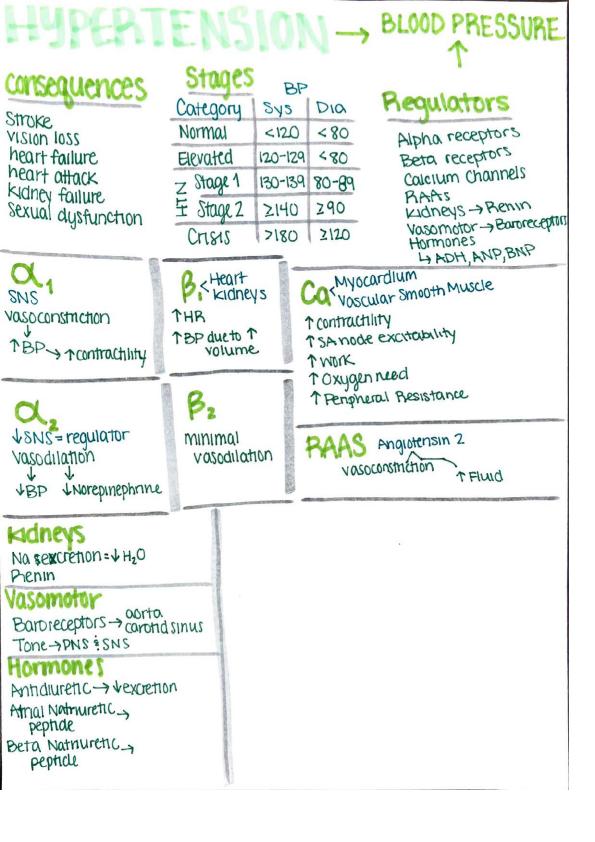 HYPERTENSION → BLOOD PRESSURE
↑
Consequences
Stroke
vision loss
heart failure
heart attack
kidney failure
Sexual dysfunction
Stages
BP
Category Sys Dia
Normal <120 <80
Elevated 120-129 <80
HTN
Stage 1 130-139 80-89
Stage 2 ≥140 ≥90
Crisis >180 ≥120
Regulators
Alpha receptors
Beta receptors
Calcium Channels
RAAs
Kidneys → Renin
Vasomotor → Baroreceptors
Hormones
↳ ADH, ANP, BNP
α1
SNS
vasoconstriction
↓
↑BP → ↑contractility
β1 < Heart
kidneys
↑HR
↑BP due to ↑
volume
Ca < Myocardium
Vascular Smooth Muscle
↑contractility
↑SA node excitability
↑work
↑Oxygen need
↑Peripheral Resistance
α2
↓SNS = regulator
Vasodilation
↓ ↓
↓BP ↓Norepinephrine
β2
minimal
vasodilation
RAAS Angiotensin 2
vasoconstriction ↑Fluid
Kidneys
Na excretion = ↓H2O
Renin
Vasomotor
Baroreceptors → aorta
carotid sinus
Tone → PNS & SNS
Hormones
Antidiuretic → ↓excretion
Atrial Natriuretic →
peptide
Beta Natriuretic →
peptide